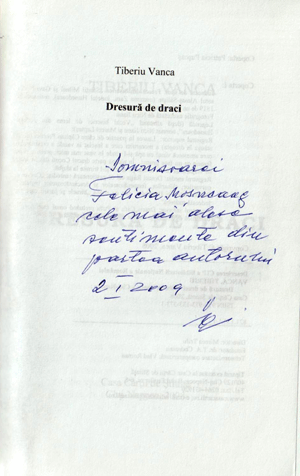 Tiberiu Vanca
Dresură de draci
Domnișoarei
Felicia
cele mai alese
sentimente din
partea autorului
2 I 2009